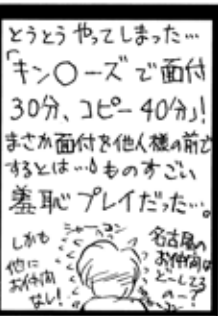 とうとうやってしまった…
「キン〇ーズで面付
30分、コピー40分」!
まさか面付を他人様の前で
するとは…ものすごい
羞恥プレイだった…。
シャーーコン
しかも
他に
お仲間
なし!
名古屋の
お仲間は
どーしてる
のー?